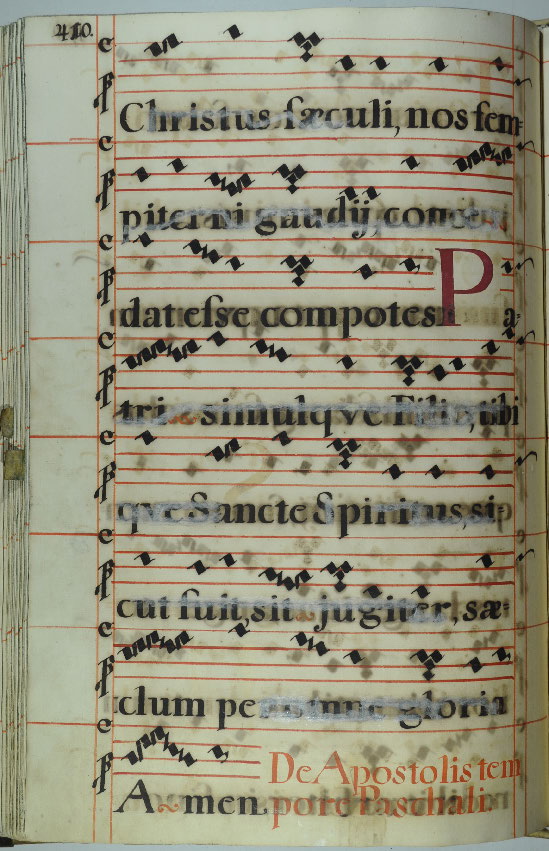 410.
Christus sæculi, nos sem=
piterni gaudij, conce
dat esse compotes. Pa=
tri simulqve Filio, tibi
qve Sancte Spiritus, si=
cut fuit, sit jugiter, sæ=
clum per omne gloria
Amen. De Apostolis tem
pore Paschali.